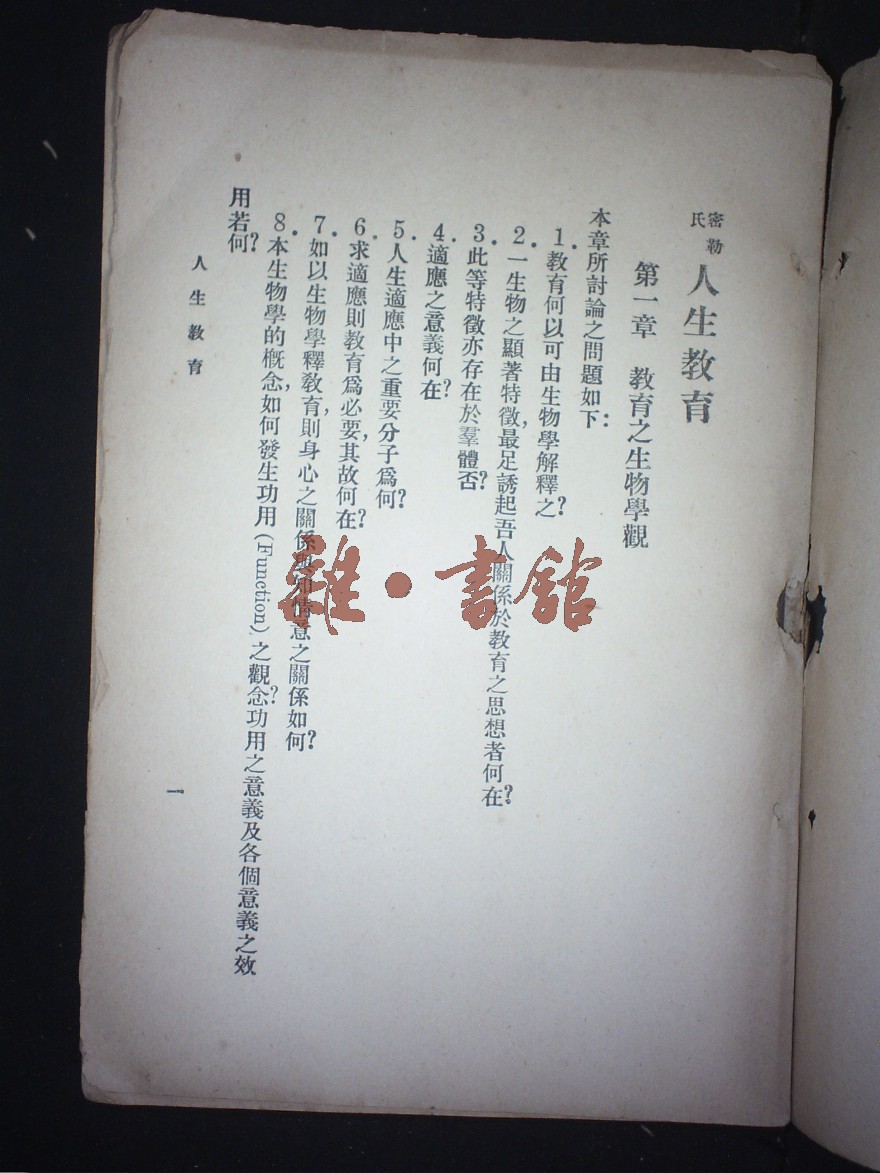 密勒氏 人生教育
第一章 教育之生物學觀
本章所討論之問題如下：
1. 教育何以可由生物學解釋之?
2. 一生物之顯著特徵,最足誘起吾人關係於教育之思想者何在?
3. 此等特徵亦存在於羣體否?
4. 適應之意義何在?
5. 人生適應中之重要分子爲何?
6. 求適應則教育爲必要,其故何在?
7. 如以生物學釋教育,則身心之關係與知情意之關係如何?
8. 本生物學的概念,如何發生功用(Function)之觀念?功用之意義及各個意義之效
用若何?
人生教育
一
雜·書館